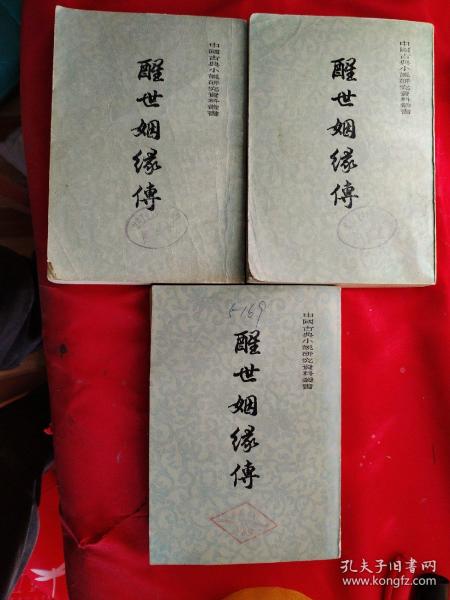 中國古典小說研究資料叢書
醒世姻緣傳
中國古典小說研究資料叢書
醒世姻緣傳
5-169
中國古典小說研究資料叢書
醒世姻緣傳
孔夫子旧书网
www.kongfz.com